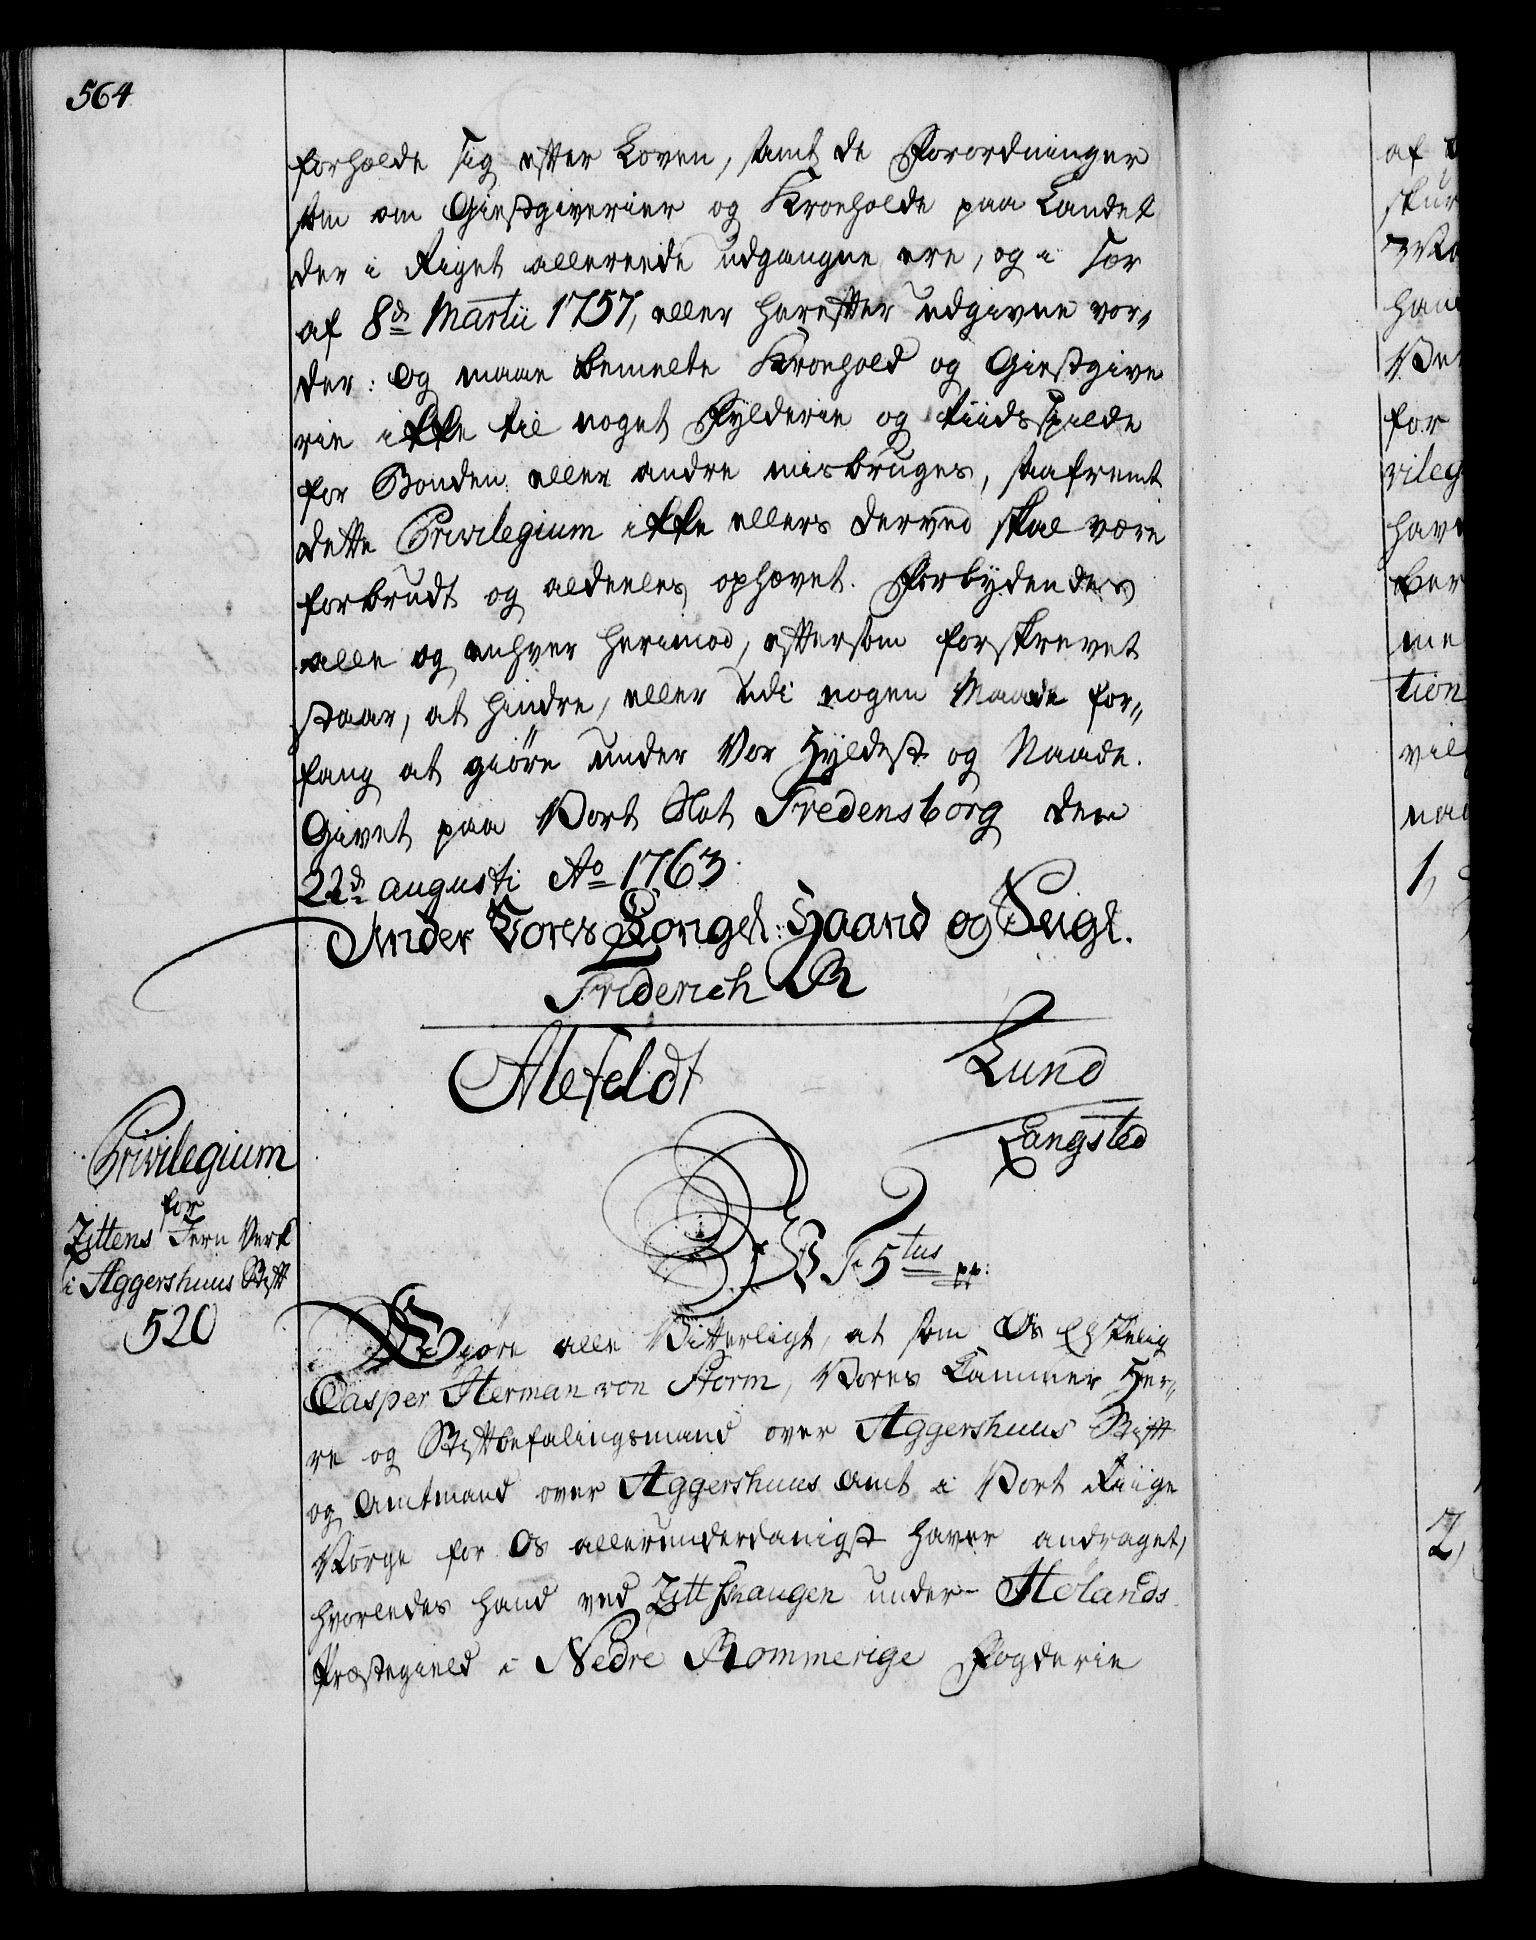 564
forholde sig efter Loven, samt de Forordninger
som om Giestgiverier og Kroeholde paa Landet
der i Riget allereede udgangne ere, og i sær
af 8de Martii 1757, eller herefter udgivne vor„
der: Og maae bemelte Kroehold og Giestgive
rie ikke til noget Fylderie og Tiidsspilde
for Bonden eller andre misbruges, saafremt
dette Privilegium ikke ellers derved skal være
forbrudt og aldeeles ophævet. Forbydendes
alle og enhver herimod, eftersom forskrevet
staar, at hindre, eller udi nogen Maade for„
fang at giöre under Vor Hyldest og Naade.
Givet paa Vort Slot Fredensborg den
22de augusti Ao 1763.
Under Vores Kongel: Haand og Seigl.
Friderich R
Alefeldt
Lund
Langsted
Privilegium
for
Zittens Jern Verk
i Aggershuus Stift
520
F 5tus pp:
Giöre alle Vitterligt, at som Os Elskelig
Casper Herman von Storm, Vores Cammer Her„
re og Stiftbefalingsmand over Aggershuus Stift
og Amtmand over Aggershuus Amt i Vort Riige
Norge for Os allerunderdanigst haver andraget,
hvorledes hand ved Zittskaugen under Hölands
Præstegield i Nedre Rommerige Fogderie